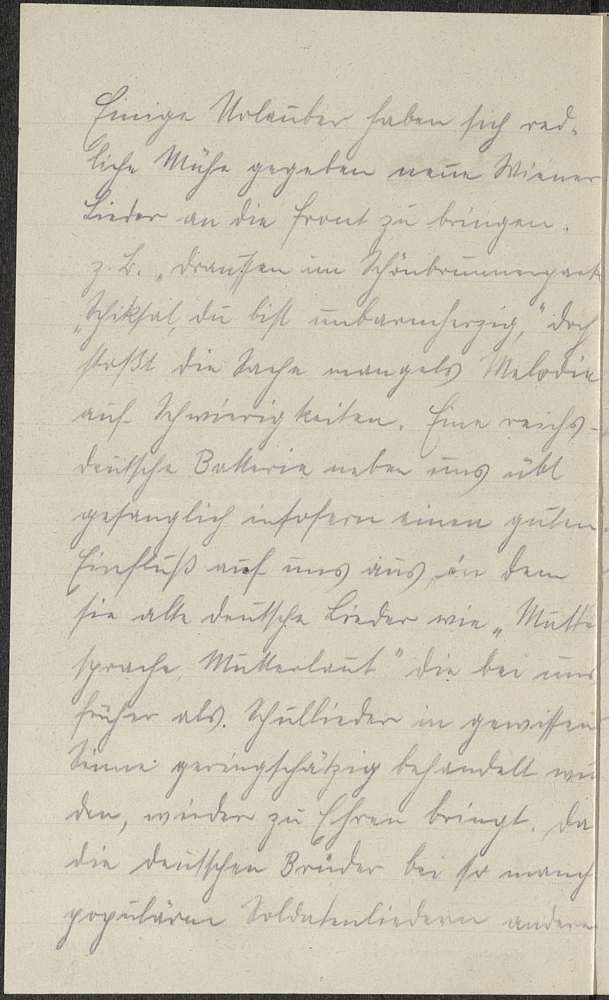 Einige Urlauber haben sich red-
liche Mühe gegeben neue Wiener
Lieder an die Front zu bringen.
z. B. „Draussen im Schönbrunnerpark
„Schiksal, du bist unbarmherzig,“ doch
stoßt die Sache mangels Melodie
auf Schwierigkeiten. Eine reichs-
deutsche Batterie neben uns übt
gesanglich insofern einen guten
Einfluß auf uns aus, in dem
sie alte deutsche Lieder wie „Mutter
sprache, Mutterlaut“ die bei uns
früher als Schullieder in gewissen
Sinne geringschätzig behandelt wur
den, wieder zu Ehren bringt. Da
die deutschen Brüder bei so manch
populären Soldatenliedern andere